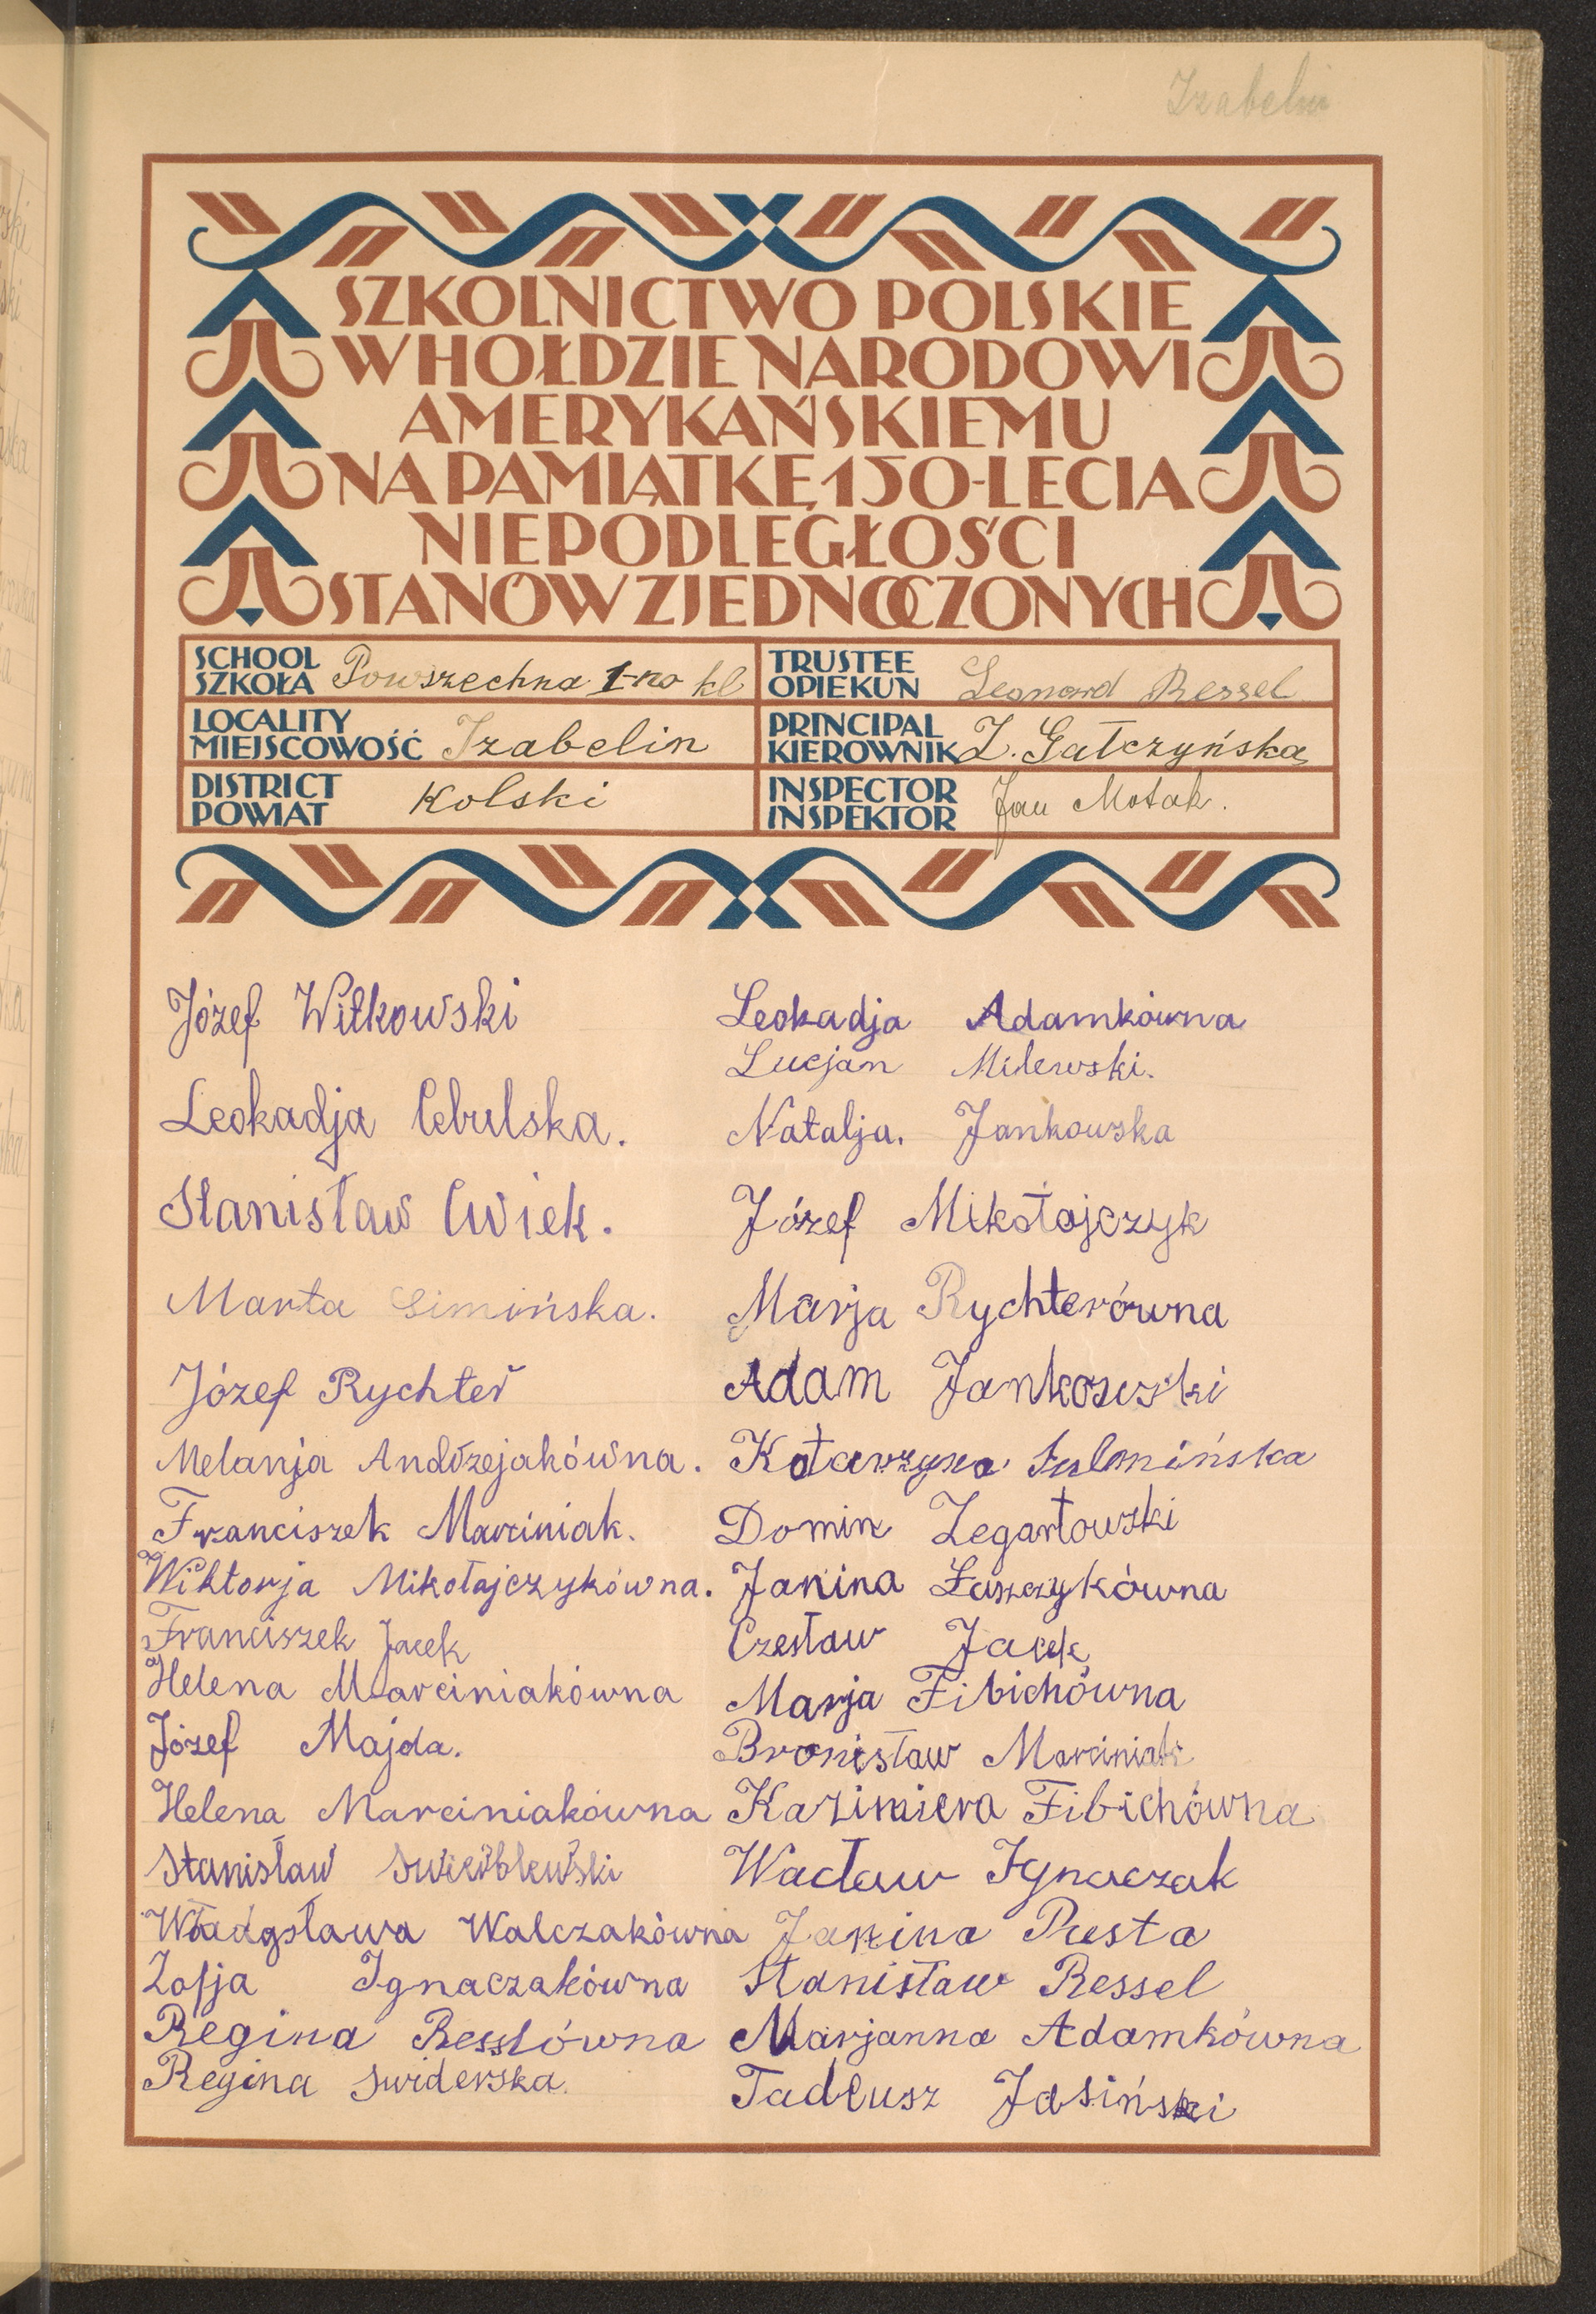 Izabelin
SZKOLNICTWO POLSKIE
W HOŁDZIE NARODOWI
AMERYKAŃSKIEMU
NA PAMIĄTKĘ 150-LECIA
NIEPODLEGŁOŚCI
STANÓW ZJEDNOCZONYCH
SCHOOL
SZKOŁA Powszechna 1-no kl
TRUSTEE
OPIEKUN Leonard Ressel
LOCALITY
MIEJSCOWOŚĆ Izabelin
PRINCIPAL
KIEROWNIK Z. Gałczyńska
DISTRICT
POWIAT Kolski
INSPECTOR
INSPEKTOR Jan Motak.
Józef Witkowski
Leokadja Cebulska.
Stanisław Cwiek.
Marta Simińska.
Józef Rychter
Melanja Andrzejakówna.
Franciszek Marciniak.
Wiktorja Mikołajczykówna.
Franciszek Jacek
Helena Marciniakówna
Józef Majda.
Helena Marciniakówna
Stanisław Swieróblewski
Władysława Walczakówna
Zofja Ignaczakówna
Regina Resslówna
Regina Swiderska.
Leokadja Adamkówna
Lucjan Milewski.
Natalja. Jankowska
Józef Mikołajczyk
Marja Rychterówna
Adam Jankowski
Katarzyna Sulmińska
Domin Zegartowski
Janina Łaszczykówna
Czesław Jacek
Marja Fibichówna
Bronisław Marciniak
Kazimiera Fibichówna
Wacław Ignaczak
Janina Pusta
Stanisław Ressel
Marjanna Adamkówna
Tadeusz Jasiński